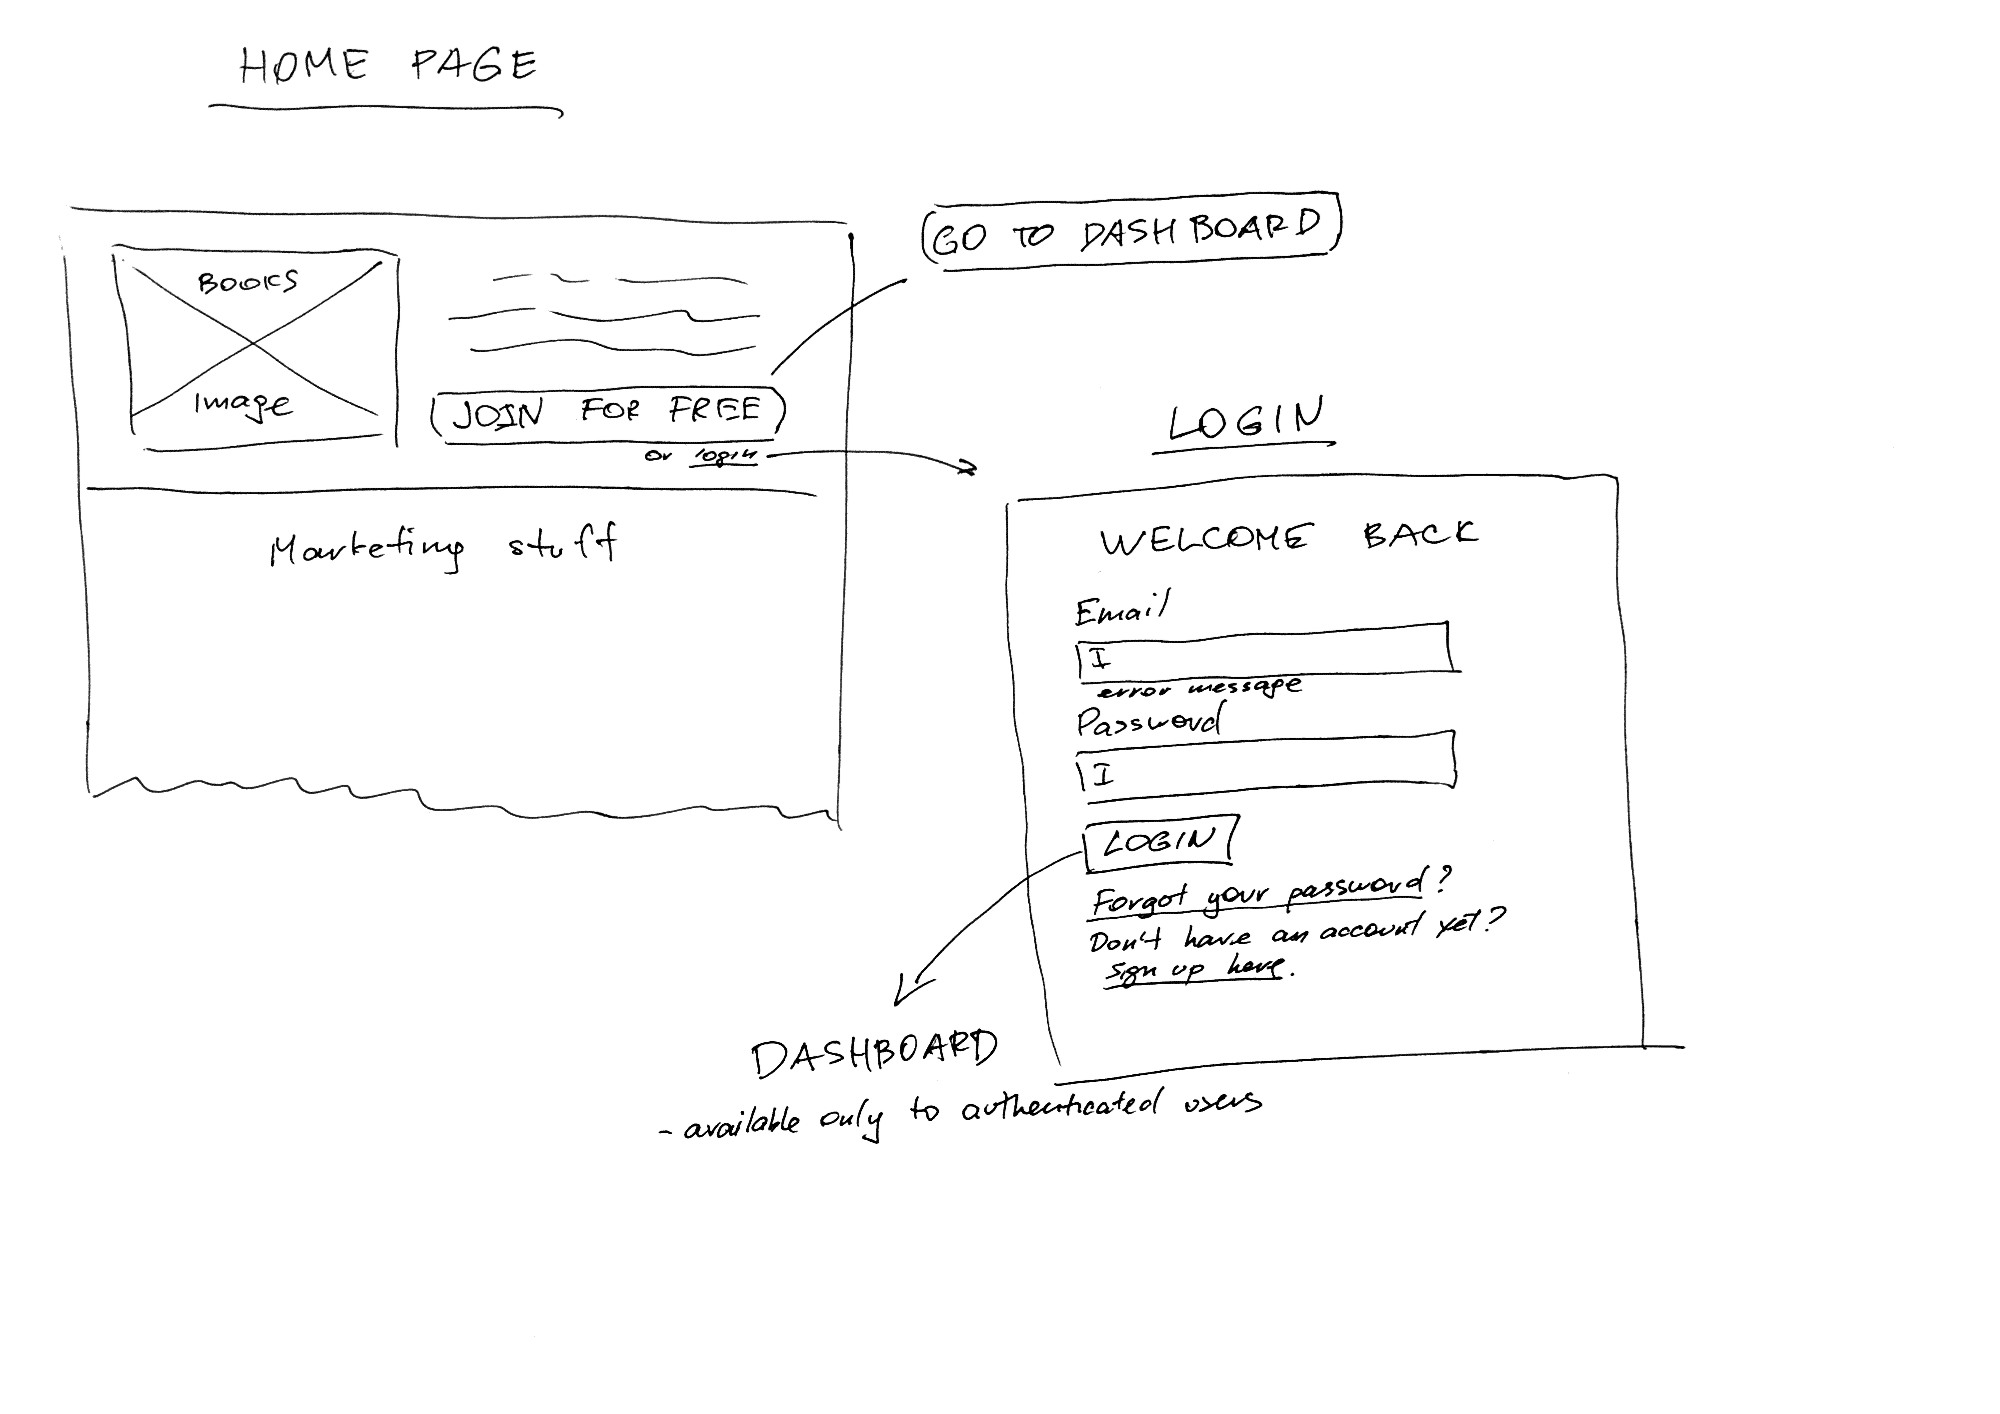 HOME PAGE
GO TO DASHBOARD
BOOKS
Image
JOIN FOR FREE
or login
Marketing stuff
LOGIN
WELCOME BACK
Email
error message
Password
LOGIN
Forgot your password?
Don't have an account yet?
sign up here.
DASHBOARD
- available only to authenticated users